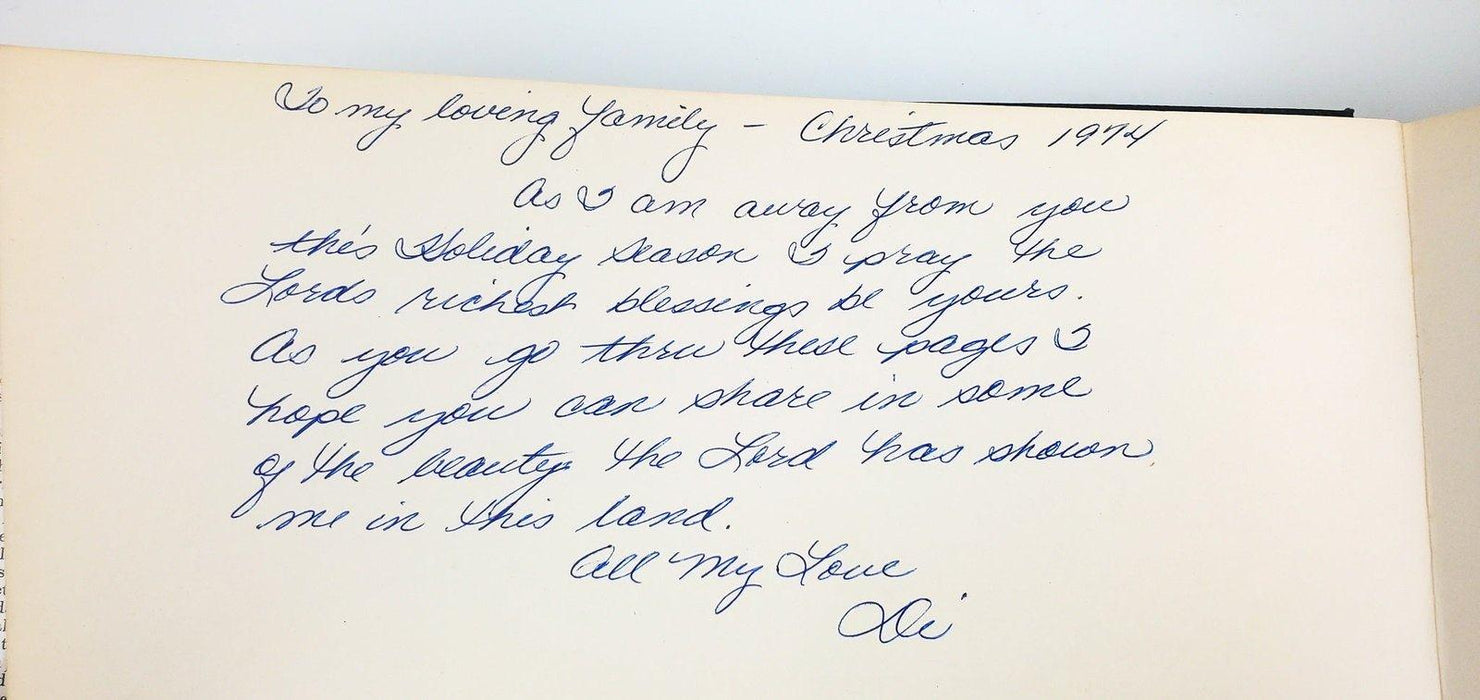 To my loving family - Christmas 1974
As I am away from you
this Holiday season I pray the
Lords richest blessings be yours.
As you go thru these pages I
hope you can share in some
of the beauty the Lord has shown
me in this land.
All My Love
Di